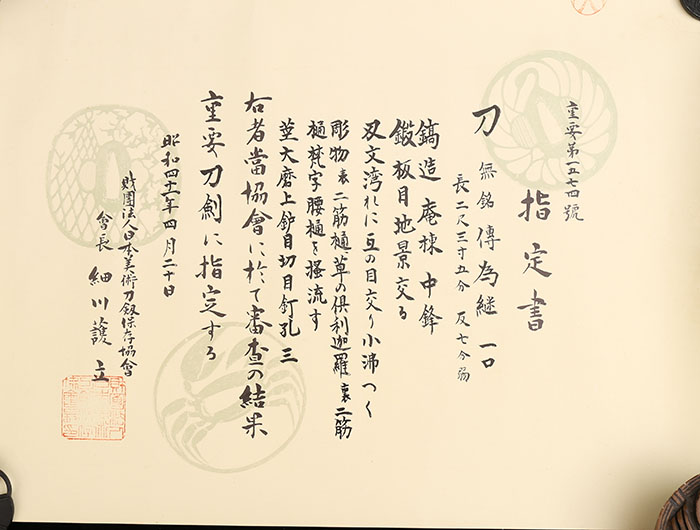 重要第一五七四號
指定書
刀 無銘 傳為継 一口
長二尺三寸五分 反七分弱
鎬造 庵棟 中鋒
鍛 板目 地景交る
刃文 湾れに互の目交り小沸つく
彫物 表二筋樋草の倶利迦羅 裏二筋
樋梵字腰樋を掻流す
茎 大磨上 鈩目切 目釘孔三
右者當協會に於て審査の結果
重要刀剣に指定する
昭和四十一年四月二十日
財團法人日本美術刀劔保存協會
會長 細川護立